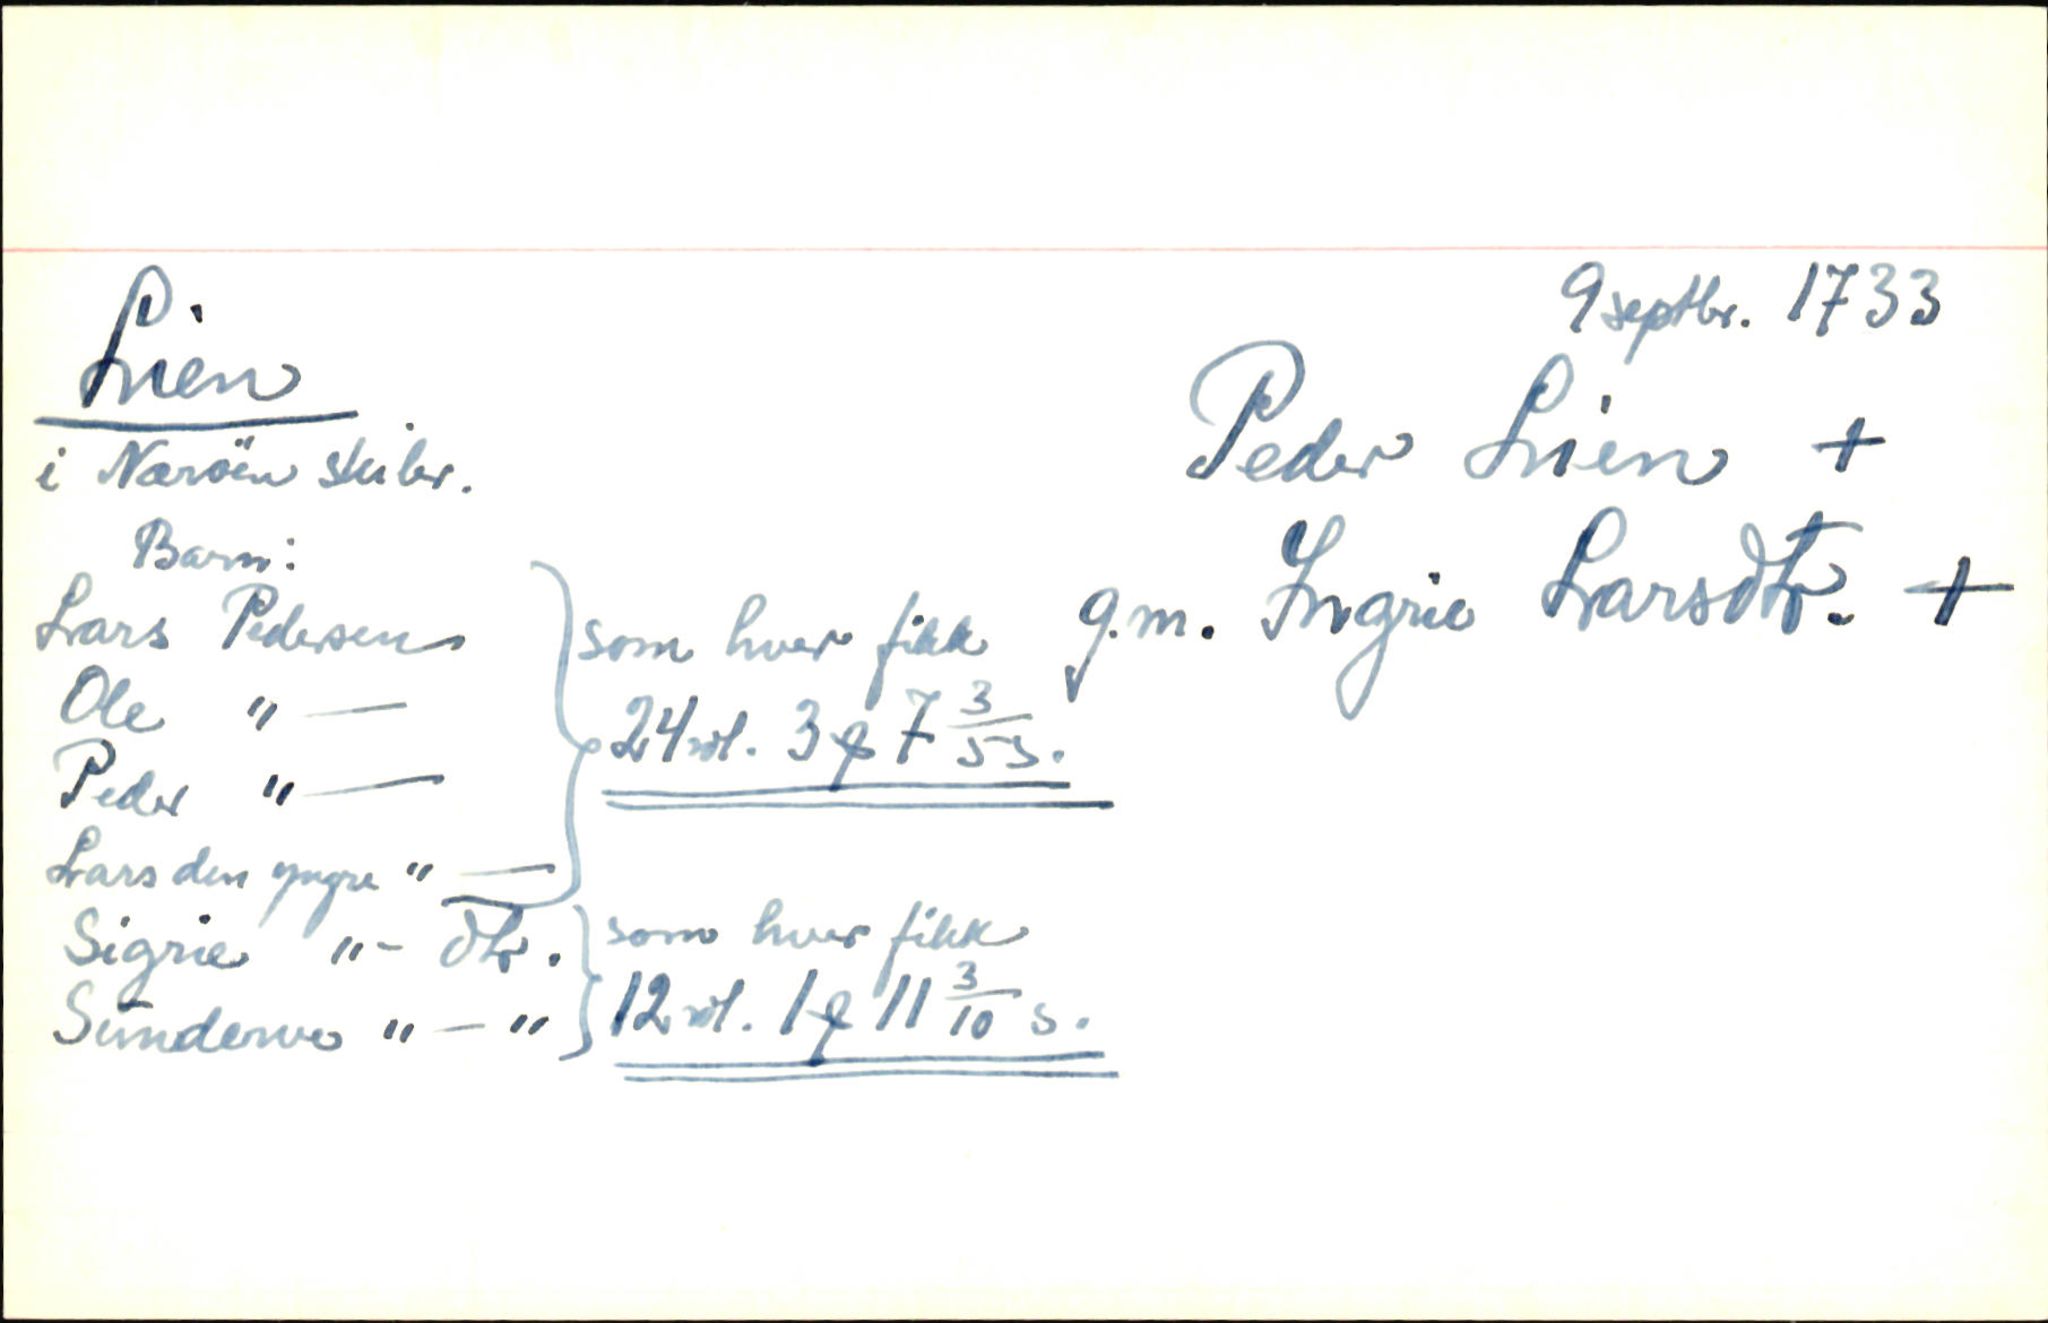 9 septbr. 1733
Lien
i Næröen skibr.
Peder Lien +
g.m. Ingrie Larsdtr. +
Barn:
Lars Pedersen
Ole " —
Peder " —
Lars den yngre " —
som hver fikk
24 rdl. 3 ƒ 7 3/5 s.
Sigrie " - dtr.
Sünderve " — "
som hver fikk
12 rdl. 1 ƒ 11 3/10 s.